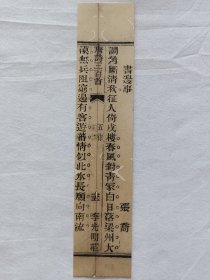 書邊事　張喬
調角斷清秋征人倚戍樓春風對青冢白日落梁州大
唐詩三百首　五　李光明莊
漠無兵阻窮邊有客遊蕃情似此水長願向南流